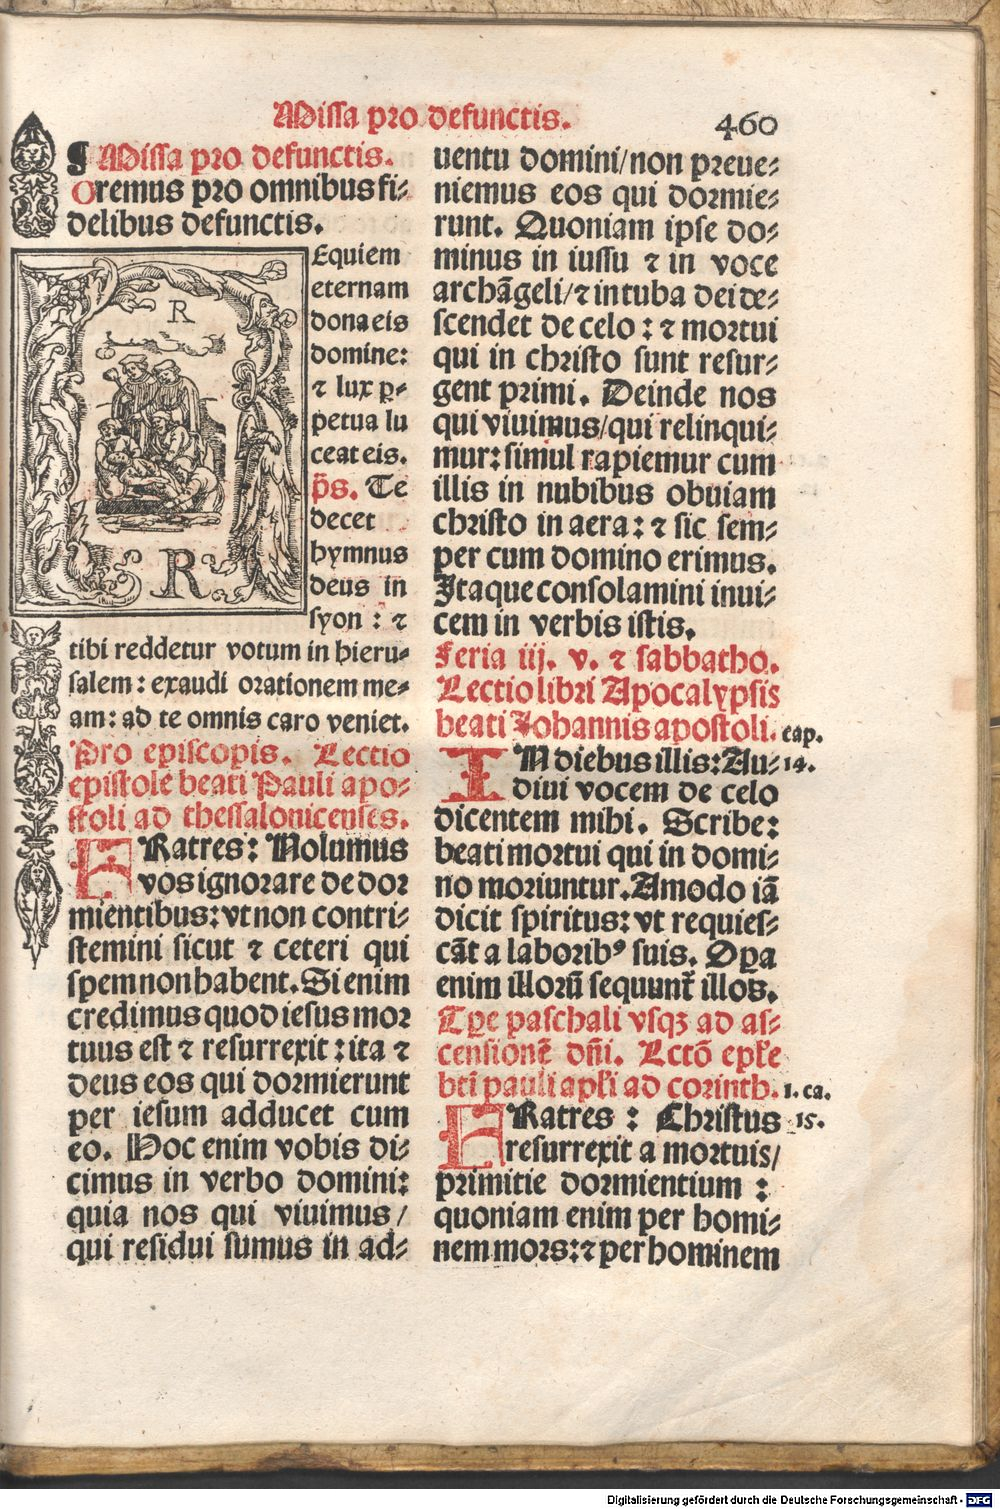 Missa pro defunctis.
460
¶ Missa pro defunctis.
Oremus pro omnibus fi⸗
delibus defunctis.
R
R
Equiem
eternam
dona eis
domine:
⁊ lux ꝑ⸗
petua lu
ceat eis.
p̄s. Te
decet
hymnus
deus in
syon : ⁊
tibi reddetur votum in hieru⸗
salem : exaudi orationem me⸗
am: ad te omnis caro veniet.
Pro episcopis. Lectio
epistole beati Pauli apo⸗
stoli ad thessalonicenses.
FRatres: Nolumus
vos ignorare de dor
mientibus: vt non contri⸗
stemini sicut ⁊ ceteri qui
spem non habent. Si enim
credimus quod iesus mor
tuus est ⁊ resurrexit : ita ⁊
deus eos qui dormierunt
per iesum adducet cum
eo. Hoc enim vobis di⸗
cimus in verbo domini:
quia nos qui viuimus /
qui residui sumus in ad⸗
uentu domini/non preue⸗
niemus eos qui dormie⸗
runt. Quoniam ipse do⸗
minus in iussu ⁊ in voce
archāgeli/⁊ in tuba dei de⸗
scendet de celo : ⁊ mortui
qui in christo sunt resur⸗
gent primi. Deinde nos
qui viuimus/qui relinqui⸗
mur: simul rapiemur cum
illis in nubibus obuiam
christo in aera: ⁊ sic sem⸗
per cum domino erimus.
Itaque consolamini inui⸗
cem in verbis istis.
Feria iij. v. ⁊ sabbatho.
Lectio libri Apocalypsis
beati Johannis apostoli. cap.
IN diebus illis: Au⸗ 14.
diui vocem de celo
dicentem mihi. Scribe:
beati mortui qui in domi⸗
no moriuntur. Amodo iā
dicit spiritus: vt requies⸗
cāt a laboribꝰ suis. Oꝑa
enim illorū sequunt̄ illos.
Tꝑe paschali vsqꝫ ad as⸗
censionē dn̄i. Lctō epl̄e
bt̄i pauli apl̄i ad corinth. 1. ca.
FRatres : Christus 15.
resurrexit a mortuis/
primitie dormientium :
quoniam enim per homi⸗
nem mors: ⁊ per hominem
Digitalisierung gefördert durch die Deutsche Forschungsgemeinschaft - DFG